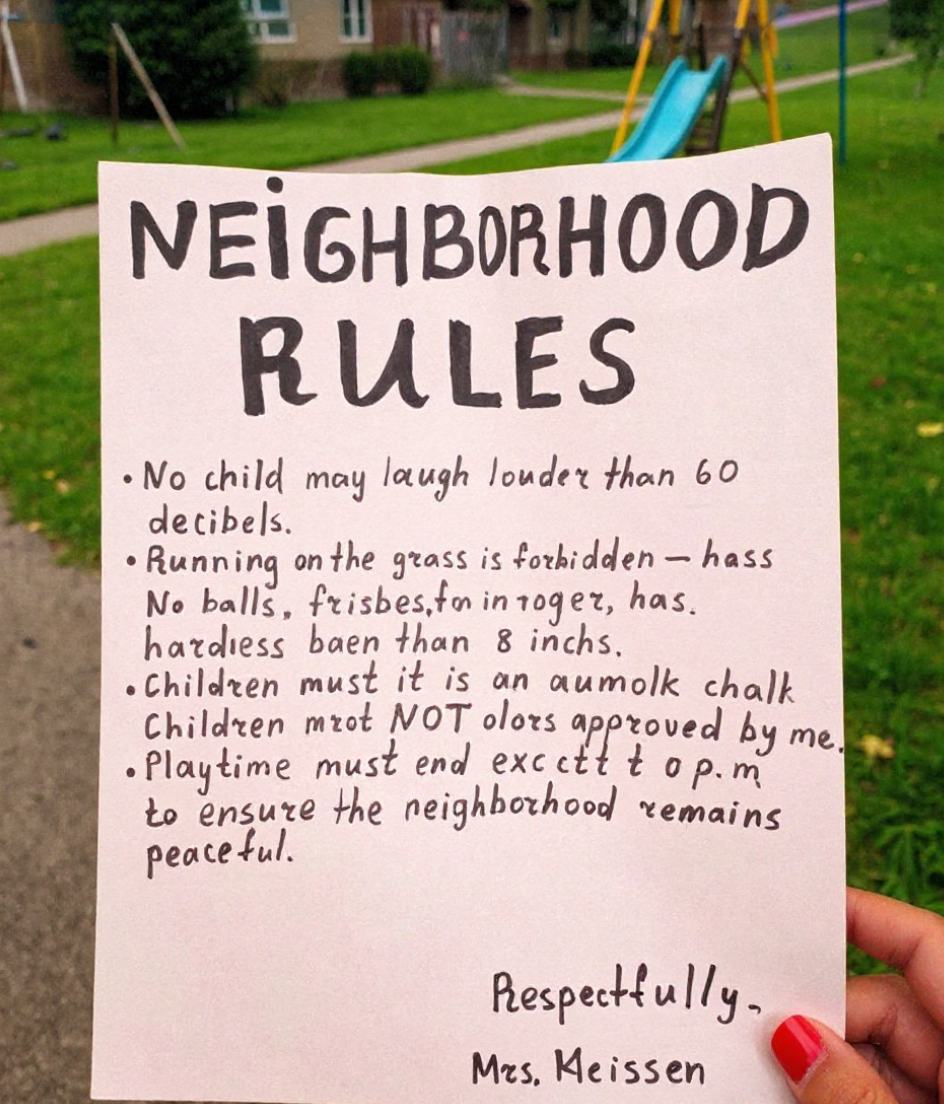 NEiGHBORHOOD
RULES
• No child may laugh louder than 60
decibels.
• Running on the grass is forbidden – hass
No balls, frisbes, in roger, has.
hardiess baen than 8 inchs.
• Children must it is an aumolk chalk
Children mrot NOT olors approved by me.
• Playtime must end exc ctt t o p.m
to ensure the neighborhood remains
peaceful.
Respectfully,
Mrs. Meissen